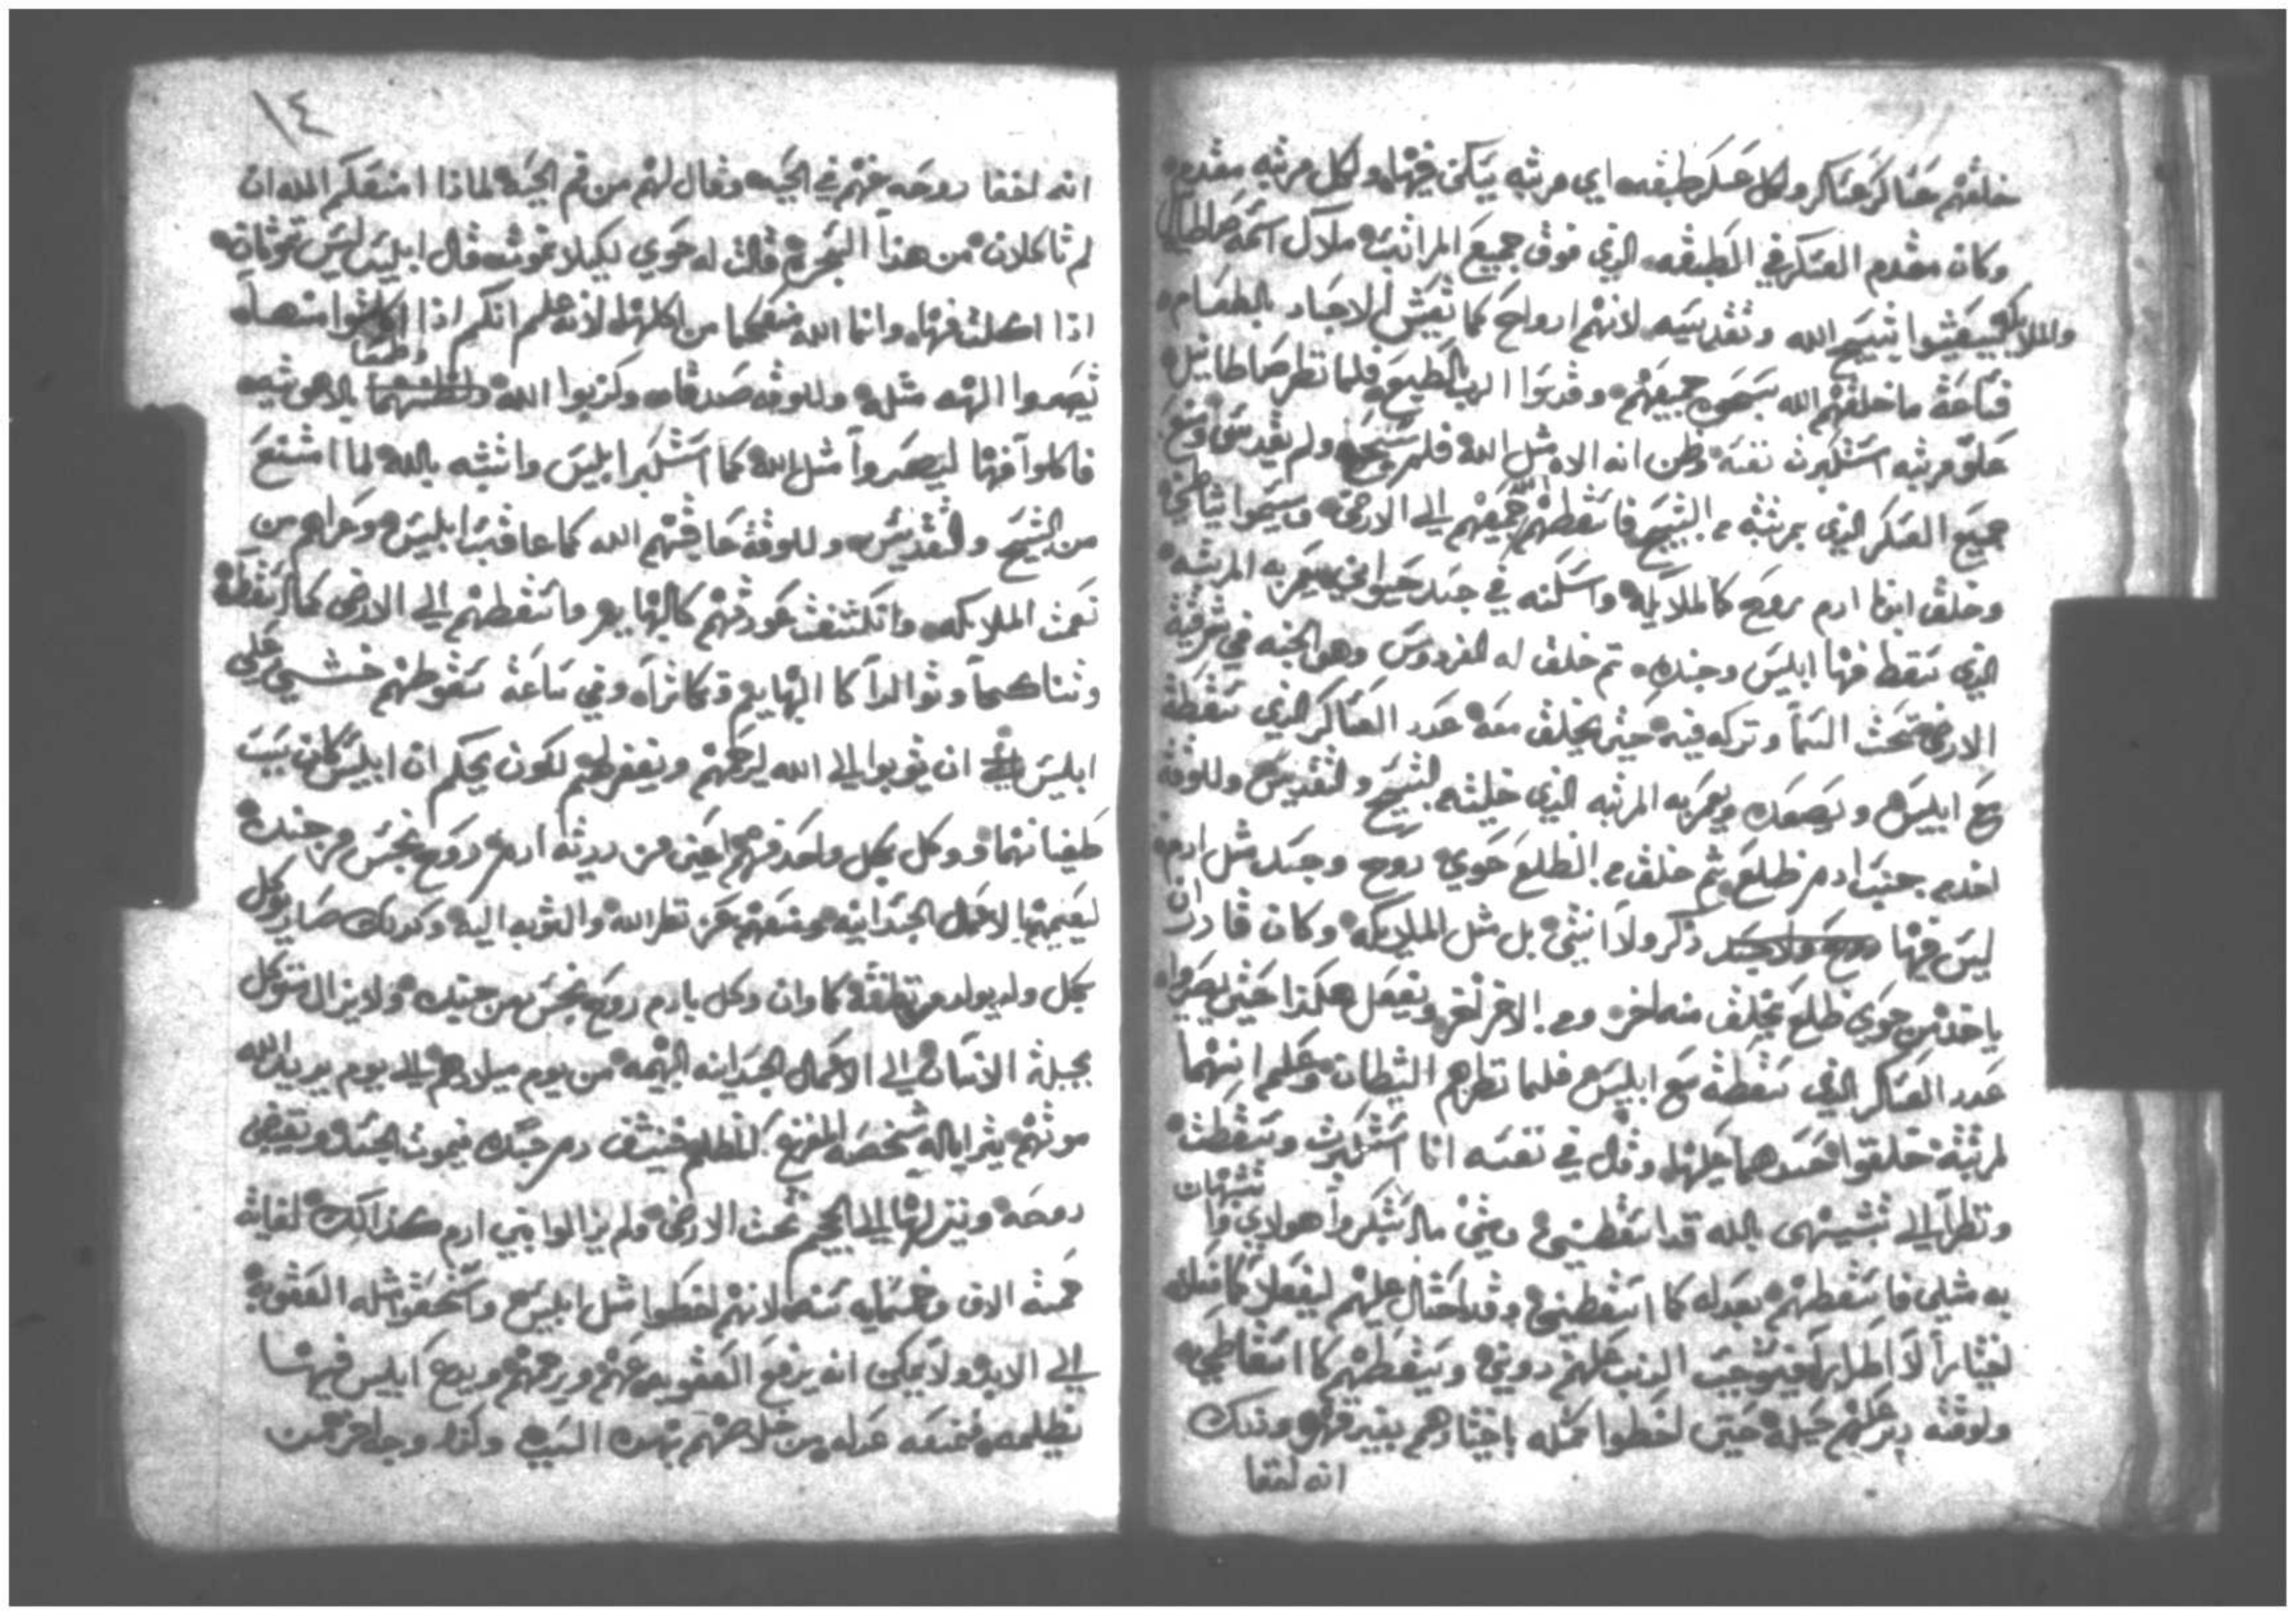 خلقهم عساكر عساكر ولكل عسكر طبقه اي مرتبه يسكن فيها ولكل مرتبه مقدم
وكان مقدم العسكر في الطبقه الذي فوق جميع المراتب ملاك اسمه
والملايكه يعيشوا بتسبيح الله وتقديسه لانهم ارواح كما تعيش الاجساد بالطعام
فساعة ما خلقهم الله سبحوه جميعهم وقدسوا الرب فلما نظر
علو مرتبه استكبرت نفسه وظن انه الاه مثل الله فلم يسبح ولم يقدس
جميع العسكر الذي بمرتبته من التسبيح فاسقطهم جميعهم الي الارض
وخلق ابونا ادم بروح كالملايكه واسكنه في جسد حيواني يعمر به المرتبه
الذي سقط منها ابليس وجنده ثم خلق له الفردوس وهو الجنه في شرقية
الارض تحت السما وتركه فيه حتي يخلق معه عدد العساكر الذي سقطة
مع ابليس ويصعده ويعمر به المرتبه الذي خليته من التسبيح والتقديس وللوقة
اخد من جنب ادم ظلع ثم خلق من الظلع حوي روح وجسد مثل ادم
ليس فيها ذكر ولا انثي بل مثل الملايكه وكان قادر ان
ياخد من حوي ظلع يخلق منه اخر ومن الاخر اخر ويفعل هكذا حتي يصيروا
عدد العساكر الذي سقطة مع ابليس فلما نظرهم الشيطان وعلم انهما
لمرتبته خلقوا حسدهما عليها وقال في نفسه انا استكبرت وسقطت
ونظرا الي تشبيهي بالله قد اسقطني ومتي ما استكبروا هولاي وا
تشبهات
به مثلي فاسقطهم بعدله كما اسقطني وقد احتال عليهم ليفعلا كما فعله
اختيارا لا دوني ويسقطهم كما اسقاطي
ولوقته دبر عليهم حيلة حتي اخطوا مثله باختيارهم بغير قهر ودلك
انه اخفا
١٤
انه اخفا روحه عنهم في الحيه وقال لهم من فم الحيه لماذا امنعكم الله ان
لم تاكلان من هذا الشجره قالت له حوي لكيلا نموت قال ابليس ليس تموتان
اذا اكلتما منها وانما الله منعكما من اكلها لانه علم انكم اذا اكلتوا منها
تصيروا الهه مثله وللوقت صدقاه وكذبوا الله بالاهوتيه
وطمعا
فاكلوا منها ليصيروا مثل الله كما استكبر ابليس واتشبه بالله لما امتنع
من التسبيح والتقديس وللوقة عاقبهم الله كما عاقب ابليس وعراهم من
نعمت الملايكه وانكشفت عورتهم كالبهايم واسقطهم الي الارض كما اسقطه
وتناكحا وتوالدا كالبهايم وتكاثرا وفي ساعة سقوطهم خشي علي
ابليس ان يتوبوا الي الله ليرحمهم ويغفر لهم لكون يحكم ان ابليس كان سبب
طغيانهما ووكل بكل واحد منهم اعني من دريته ادم روح نجس من جنده
لاعمال الجسدانيه ومنعهم عن نظر الله والتوبه اليه وكدلك صار يوكل
بكل ولد يولد من نطفة كما وان وكل بادم روح نجس من جنده ولا يزال متوكل
بجبلة الانسان الي الاعمال الجسدانيه البهيمه من يوم ميلادهم الي يوم يريد الله
موتهم يترايا له شخصه المفزع دم جسده فيموت الجسد ويقبض
روحه وينزلها الي الجحيم تحت الارض ولم يزالوا بني ادم كذالك لغاية
خمسة الاف وخمسمايه سنه لانهم اخطوا مثل ابليس واستحقوا مثله العقوبة
الي الابد ولا يمكن انه يرفع العقوبه عنهم ويرحمهم ويدع ابليس فيها
يظلمه فمنعه عدله من خلاصهم بهده السبب ولكنه وجد اخر من